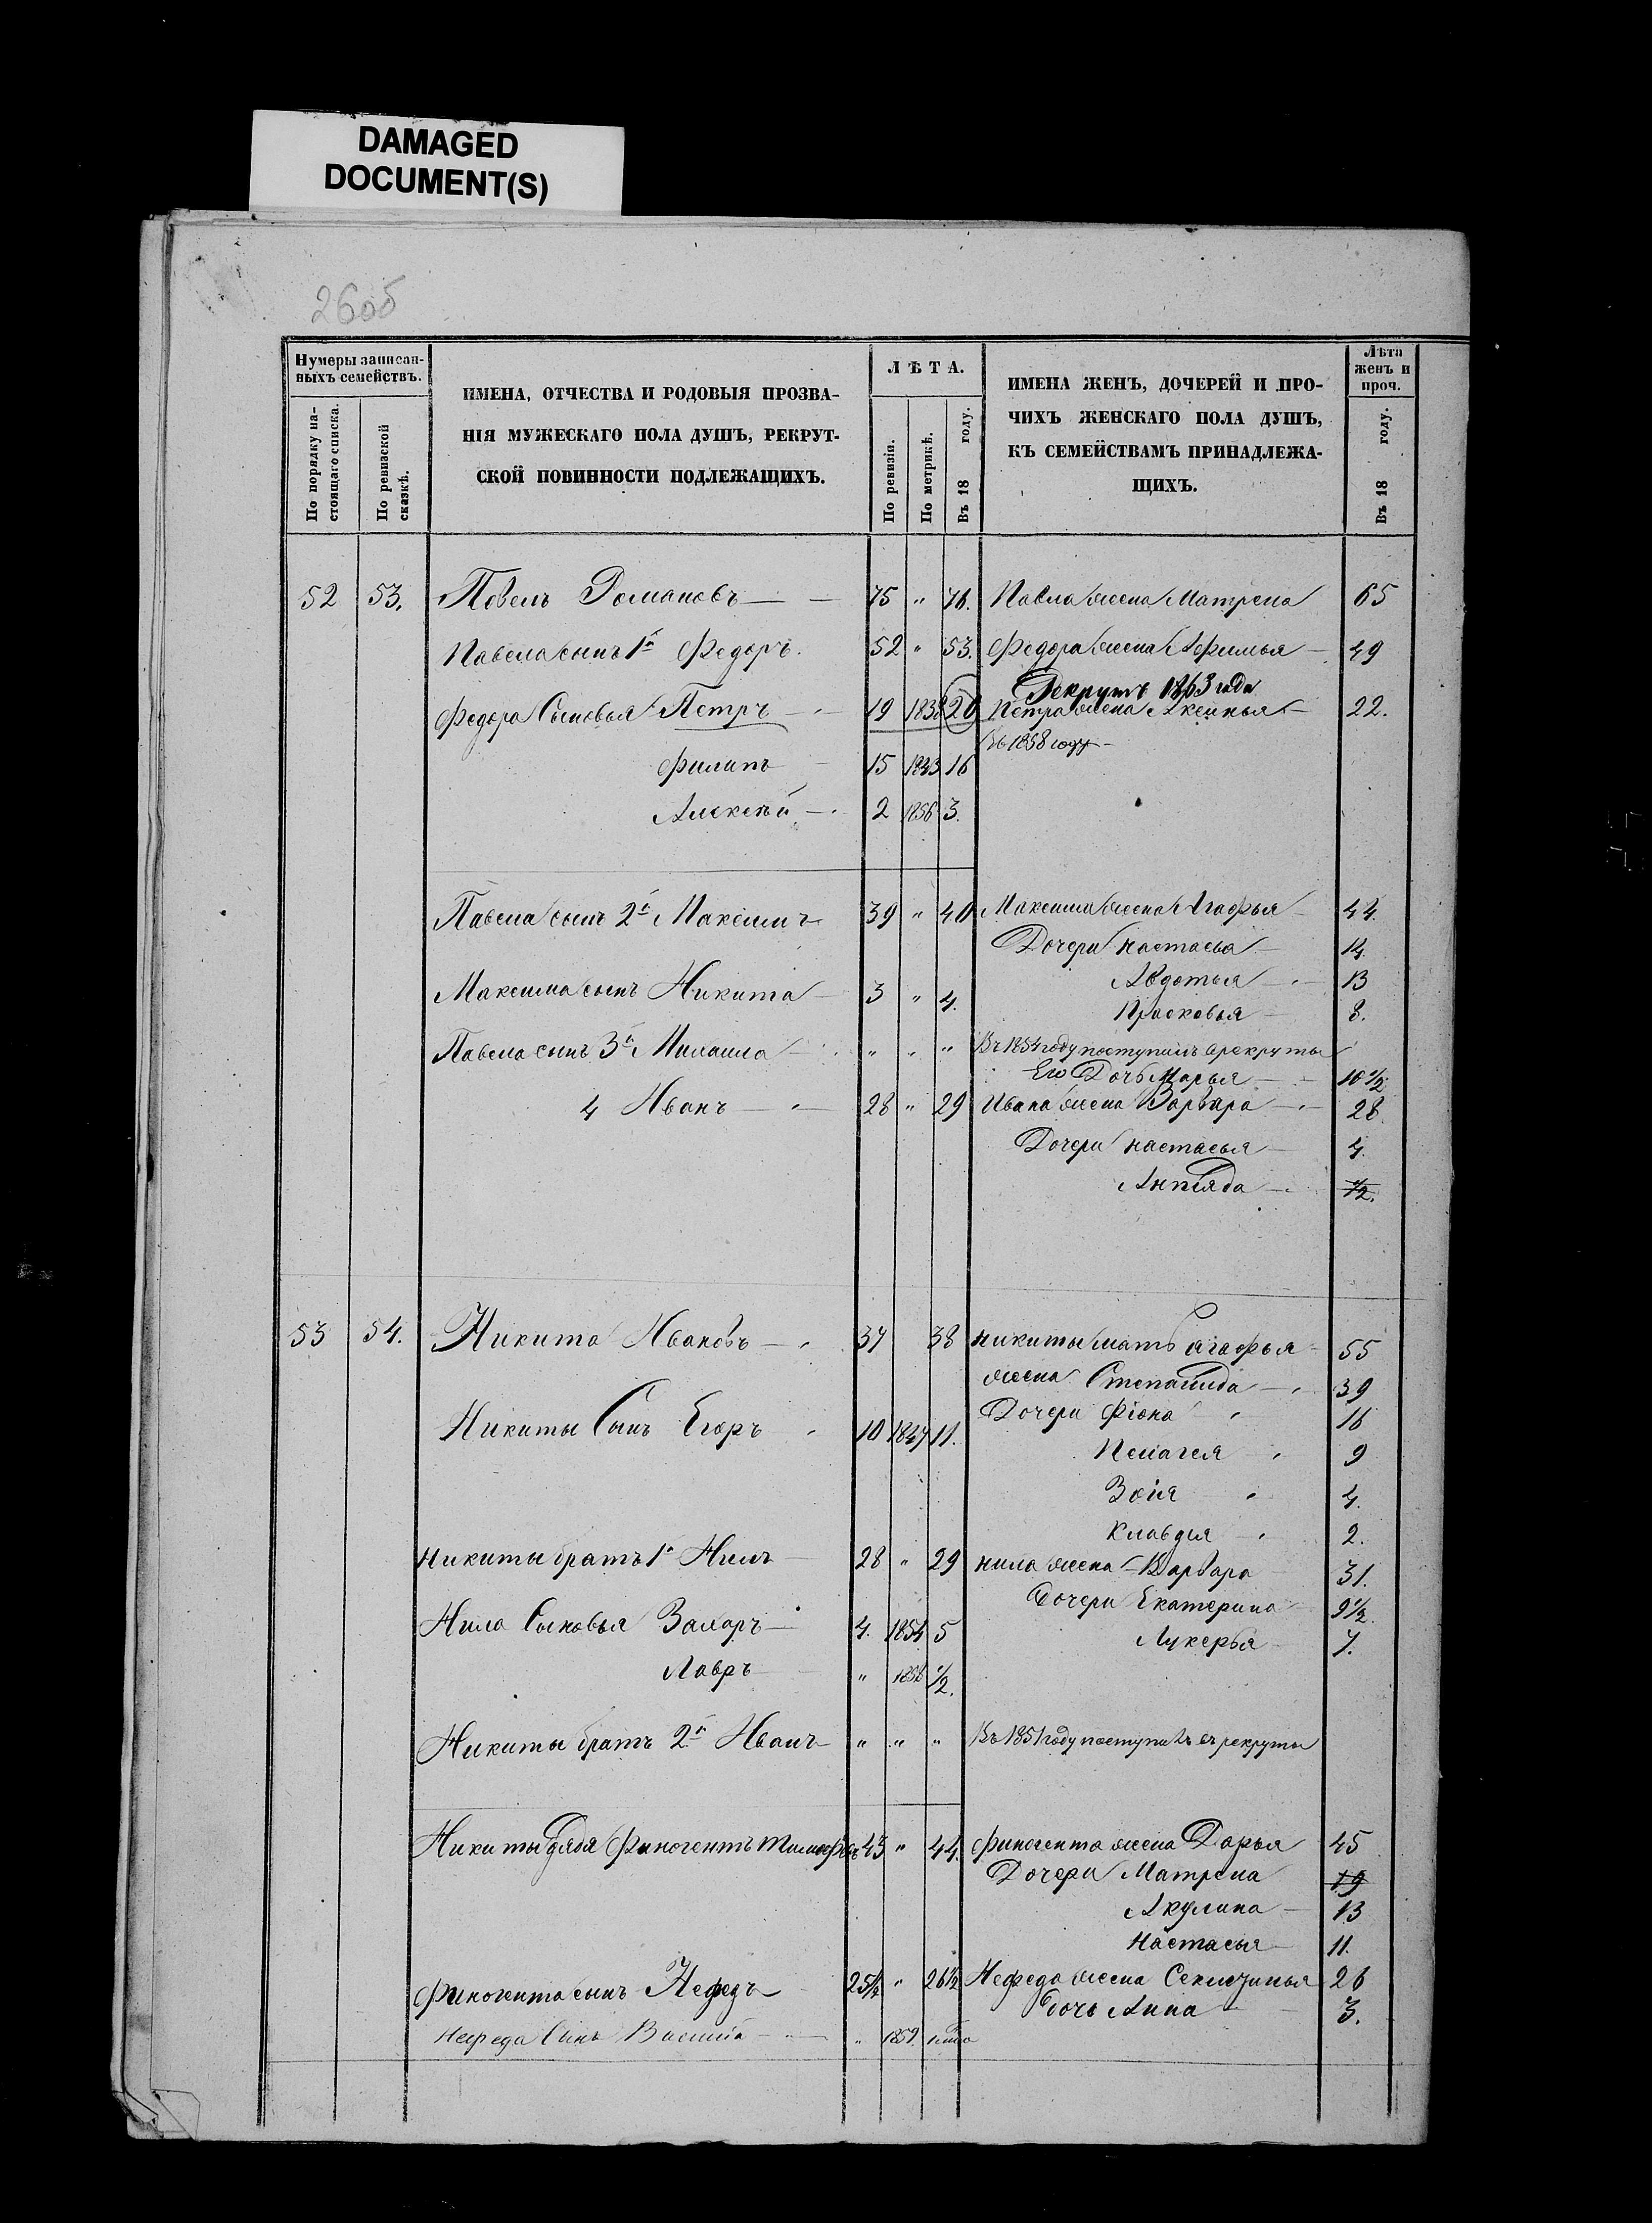 DAMAGED
DOCUMENT(S)
26об
Нумеры записан-
ныхъ семействъ.
По порядку на-
стоящаго списка.
По ревизской
сказкѣ.
ИМЕНА, ОТЧЕСТВА И РОДОВЫЯ ПРОЗВА-
НІЯ МУЖЕСКАГО ПОЛА ДУШЪ, РЕКРУТ-
СКОЙ ПОВИННОСТИ ПОДЛЕЖАЩИХЪ.
ЛѢТА.
По ревизіи.
По метрикѣ.
Въ 18 году.
ИМЕНА ЖЕНЪ, ДОЧЕРЕЙ И ПРО-
ЧИХЪ ЖЕНСКАГО ПОЛА ДУШЪ,
КЪ СЕМЕЙСТВАМЪ ПРИНАДЛЕЖА-
ЩИХЪ.
Лѣта
женъ и
проч.
Въ 18 году.
52 53. Павелъ Романовъ 75 " 76. Павла жена Матрена 65
Павела сынъ 1й Федоръ. 52 " 53. Федора жена Афимья 49
Рекрутъ 1863 года
Федора Сыновья Петръ 19 1838 20 Петра жена Аксинья 22.
Въ 1858 году
Филипъ 15 1843 16
Алексѣй 2 1856 3.
Павела сынъ 2й Максимъ 39 " 40 Максима жена Агафья 44.
Дочери Настасья 14.
Авдотья 13
Максима сынъ Никита 3 " 4.
Прасковья 8.
Павела сынъ 3й Михаила " " " Въ 1854 году поступилъ в рекруты
Его Дочь Марья 10 1/2
4 Иванъ 28 " 29 Ивана жена Варвара 28.
Дочери Настасья 4.
1/2.
53 54. Никита Ивановъ 37 38 Никиты мать Агафья 55
жена Степанида 39
Никиты Сынъ Егоръ 10 1847 11. Дочери Фіона 16
Пелагея 9
Зоія 4.
Клавдия 2.
Никиты братъ 1й Нилъ 28 " 29 Нила жена Варвара 31.
Дочери Екатерина 9 1/2.
Нила Сыновья Захаръ 4. 1854 5 Лукерья 7.
Лавръ " 1858 1/2.
Никиты братъ 2й Иванъ " " " Въ 1851 году поступилъ въ рекруты
Никиты дядя Финогентъ Тимофѣевъ 43 " 44. Финогента жена Дарья 45
Дочери Матрена 19
Акулина 13
Настасья 11.
Финогента сынъ Нефедъ 25 1/2 " 26 1/2 Нефеда жена 26
Дочь Анна 3.
Нефеда Сынъ Василій " 1859.